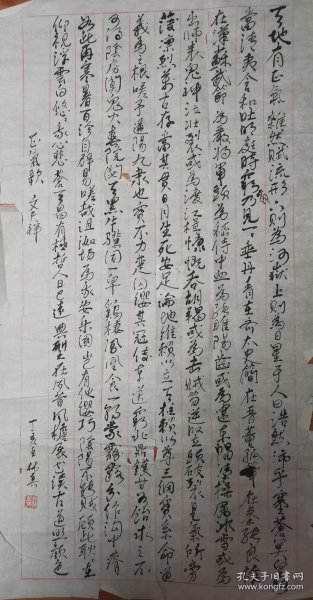 天地有正氣雜然賦流形下則為河嶽上則為日星于人曰浩然沛乎塞蒼冥皇路
當清夷含和吐明庭時窮節乃見一一垂丹青在齊太史簡在晉董狐筆在秦張良椎
在漢蘇武節為嚴將軍頭為嵇侍中血為張睢陽齒或為遼東帽清操厲冰雪或為
出師表鬼神泣壯烈或為渡江楫慷慨吞胡羯或為擊賊笏逆豎頭破裂是氣所旁
薄凜烈萬古存當其貫日月生死安足論地維賴以立天柱賴以尊三綱實系命道
義為之根嗟予遘陽九隸也實不力楚囚纓其冠傳車送窮北鼎鑊甘如飴求之不
可得陰房闃鬼火春院閟天黑牛驥同一皁雞棲鳳凰食一朝蒙霧露分作溝中瘠
如此再寒暑百沴自辟易嗟哉沮洳場為我安樂國豈有他繆巧陰陽不能賊顧此耿耿在
仰視浮雲白悠悠我心悲蒼天曷有極哲人日已遠典刑在夙昔風檐展書讀古道照顏色
正氣歌 文天祥 丁亥
孔夫子旧书网